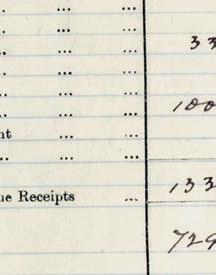 .. ... ...
... ...
.. ... ... 33
... ...
.. ... ...
.. ... ... 100
nt ... ...
.. ... ...
ne Receipts ... 133
729